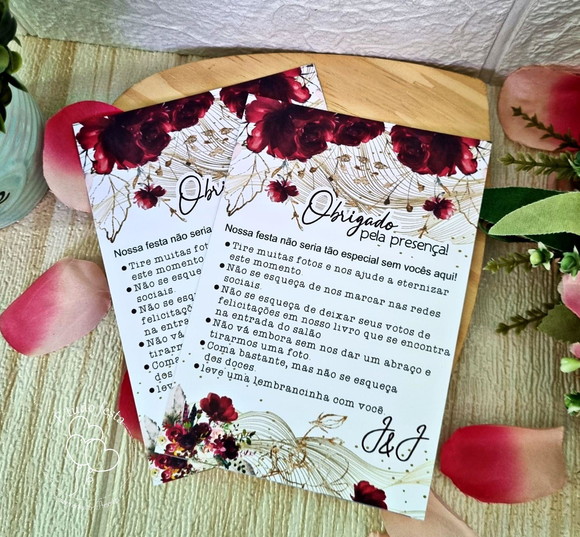 Obrigado
pela presença!
Nossa festa não seria tão especial sem vocês aqui!
•Tire muitas fotos e nos ajude a eternizar
este momento.
•Não se esqueça de nos marcar nas redes
sociais.
•Não se esqueça de deixar seus votos de
felicitações em nosso livro que se encontra
na entrada do salão
•Não vá embora sem nos dar um abraço e
tirarmos uma foto.
•Coma bastante, mas não se esqueça
dos doces.
•leve uma lembrancinha com você.
J&J
Obri
Nossa festa não seria t
•Tire muitas fotos
este momento.
•Não se esque
sociais.
•Não se esqu
felicitaç
na entrada
•Não vá
tirarm
•Coma
dos
•leve